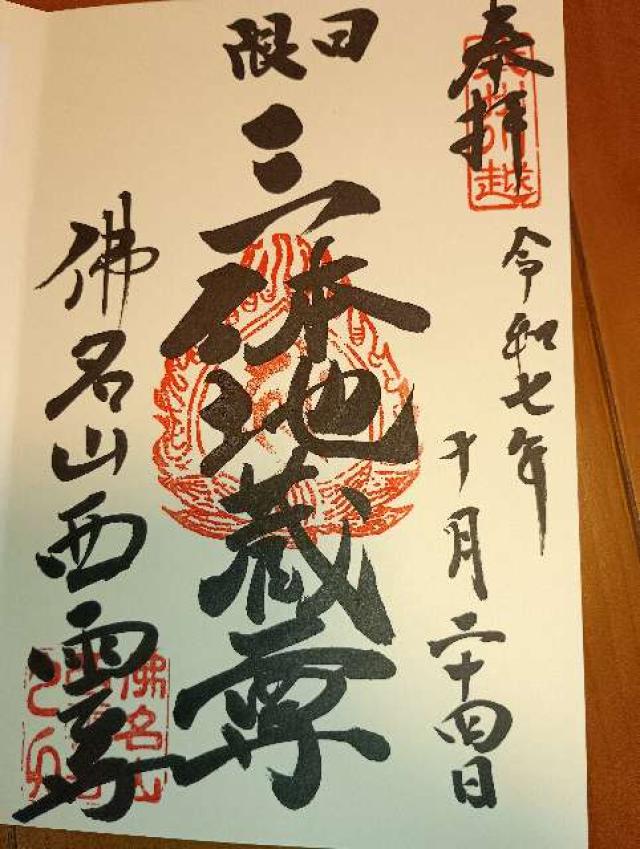 奉拝
武州川越
令和七年
十月二十四日
日限
三体地蔵尊
佛名山西雲寺
佛名山